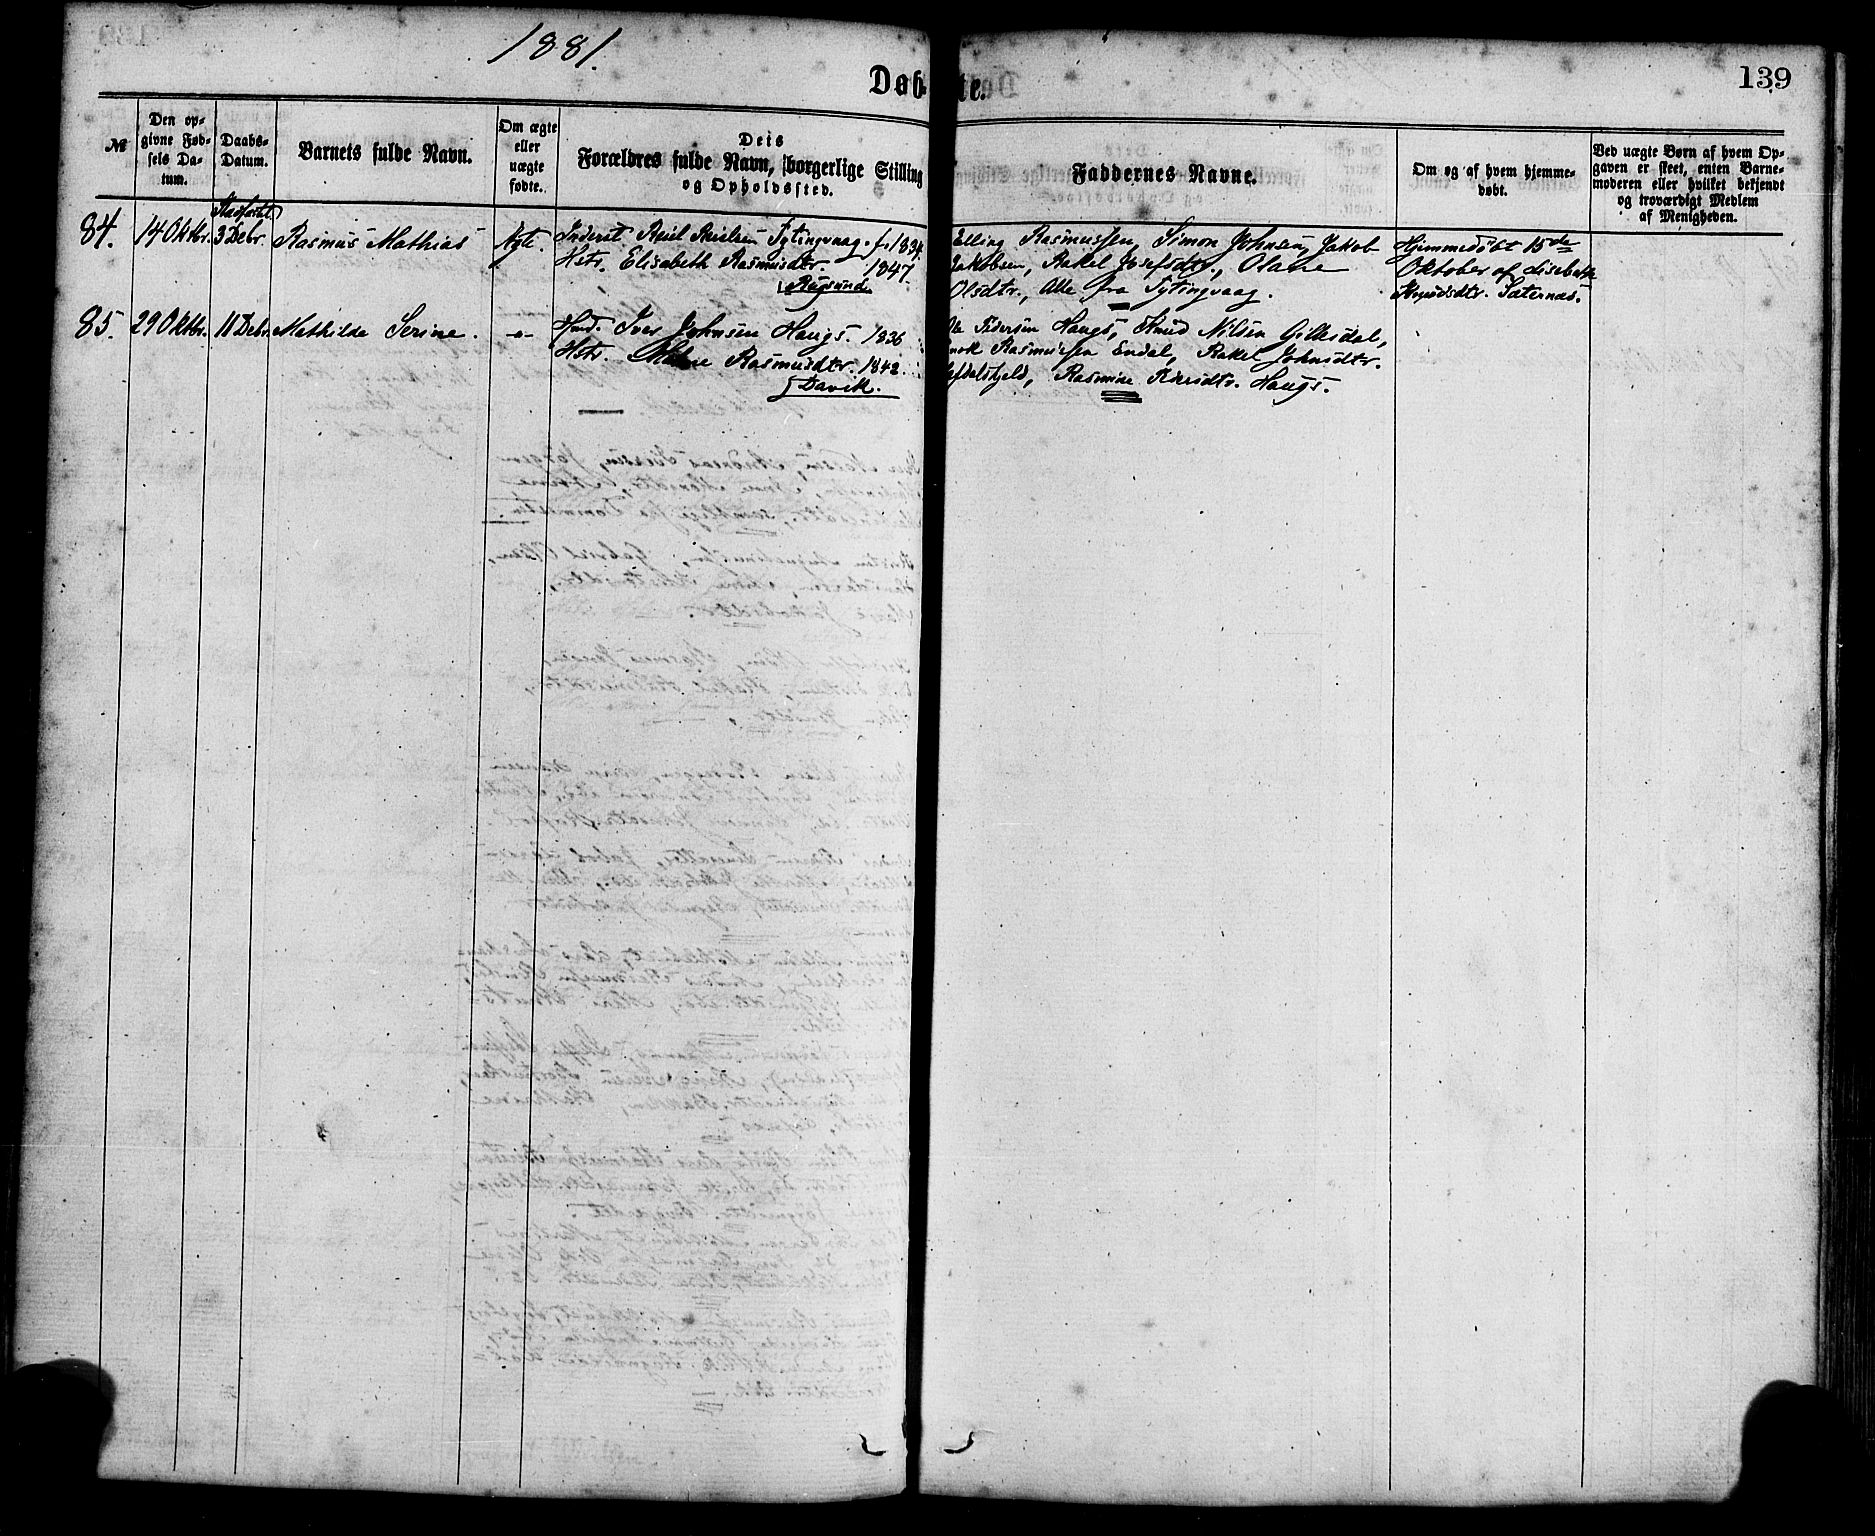 1881.
Døb
te.
139
№
Den op-
givne Fød-
sels Da-
tum.
Daabs-
Datum.
Barnets fulde Navn.
Om ægte
eller
uægte
fødte.
Dets
Forældres fulde Navn, borgerlige Stilling
og Opholdssted.
Faddernes Navne.
Om og af hvem hjemme-
døbt.
Ved uægte Børn af hvem Op-
gaven er skeet, enten Barne-
moderen eller hvilket bekjendt
og troværdigt Medlem
af Menigheden.
Stadfæstet
84. 14 Oktbr. 3 Debr. Rasmus Mathias Ægte. Inderst Reiel Reielsen Tytingvaag f. 1834.
Hstr. Elisabeth Rasmusdtr. 1847.
Rugsund
Elling Rasmussen, Simon Johnsen, Jakob
Jakobsen, Rakel Josefsdtr., Oline
Olsdtr., Alle fra Tytingvaag.
Hjemmedøbt 15de
Oktober af Lisebeth
Knudsdtr. Sæternæs.
85. 29 Oktbr. 11 Debr. Mathilde Serine. -"- Hmd. Iver Johnsen Haugs. 1836
Hstr. Rasmusdtr. 1842.
Davik.
Pedersen Haugs, Knud Nilsen Gillesdal,
Rasmussen Endal, Rakel Johnsdtr.
Rasmine Iversdtr. Haugs.